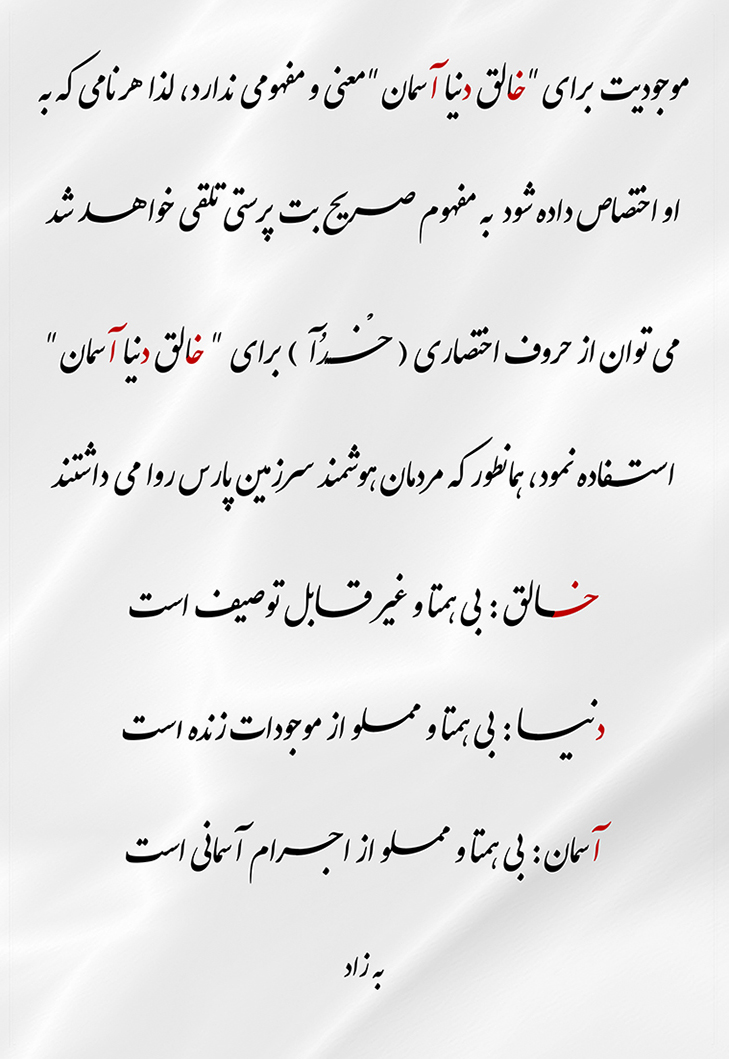 موجودیت برای "خالق دنیا آسمان" معنی و مفهومی ندارد، لذا هر نامی که به
او اختصاص داده شود به مفهوم صریح بت پرستی تلقی خواهد شد
می توان از حروف اختصاری ( خْدُآ ) برای " خالق دنیا آسمان "
استفاده نمود، همانطور که مردمان هوشمند سرزمین پارس روا می داشتند
خالق : بی همتا و غیر قابل توصیف است
دنیا : بی همتا و مملو از موجودات زنده است
آسمان : بی همتا و مملو از اجرام آسمانی است
به زاد